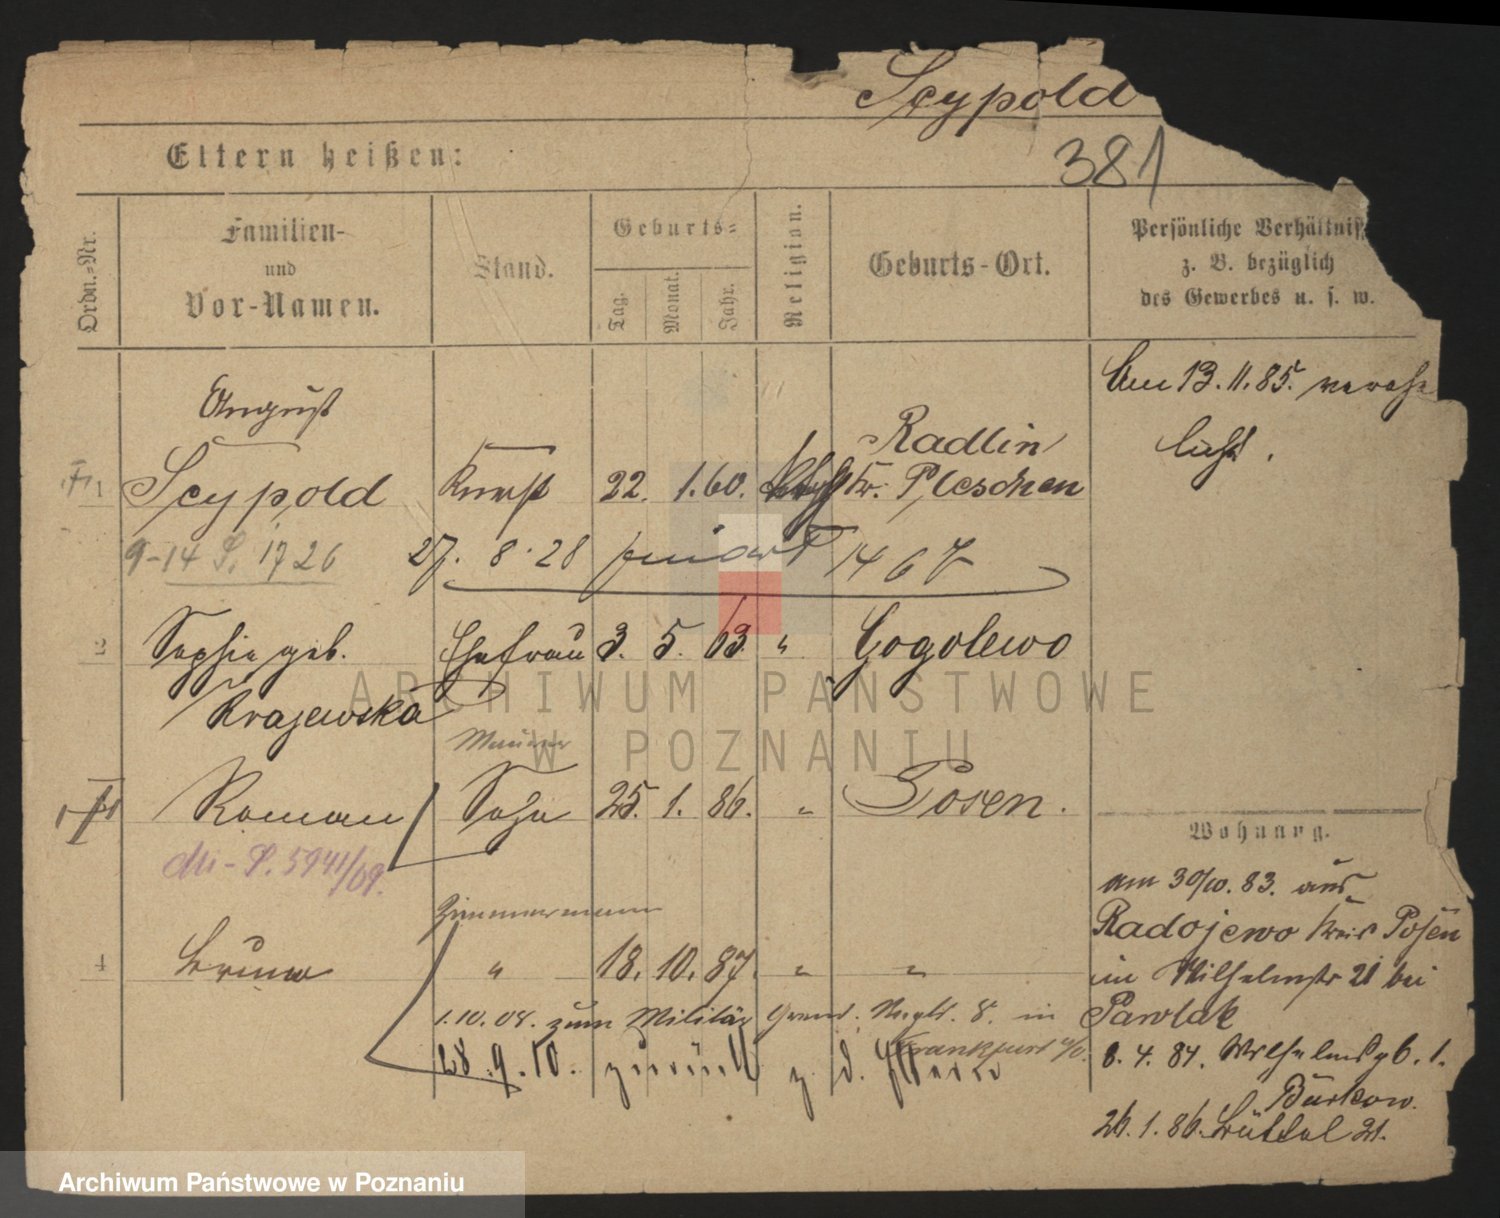 Scypold
381
Eltern heißen:
Ordn.-Nr.
Familien-
und
Vor-Namen.
Stand.
Geburts-
Tag.
Monat.
Jahr.
Religion.
Geburts-Ort.
Persönliche Verhältniss
z. B. bezüglich
des Gewerbes u. s. w.
Am 13.11.85. verehe
licht.
August
Radlin
1 Scypold 22. 1. 60. Kr. Pleschen
9-14 S. 1726 27. 8. 28 1467
2 Sophie geb. Ehefrau 3. 5. 63. " Gogolewo
Krajewska
Maurer
Roman Sohn 25. 1. 86. " Posen.
S. 5941/09.
Wohnung.
am 30/10. 83. aus
Radojewo Kreis Posen
in Wilhelmstr 21 bei
Pawlak
8. 4. 84. Wilhelmspl. 1.
26. 1. 86. Büttel 21.
Zimmermann
4 Bruno " 18. 10. 87. " "
1.10.08. zum Militär Gren. Regt. 8. in
Frankfurt a/O.
28.9.10. zurück z. d. Eltern
ARCHIWUM PAŃSTWOWE
W POZNANIU
Archiwum Państwowe w Poznaniu